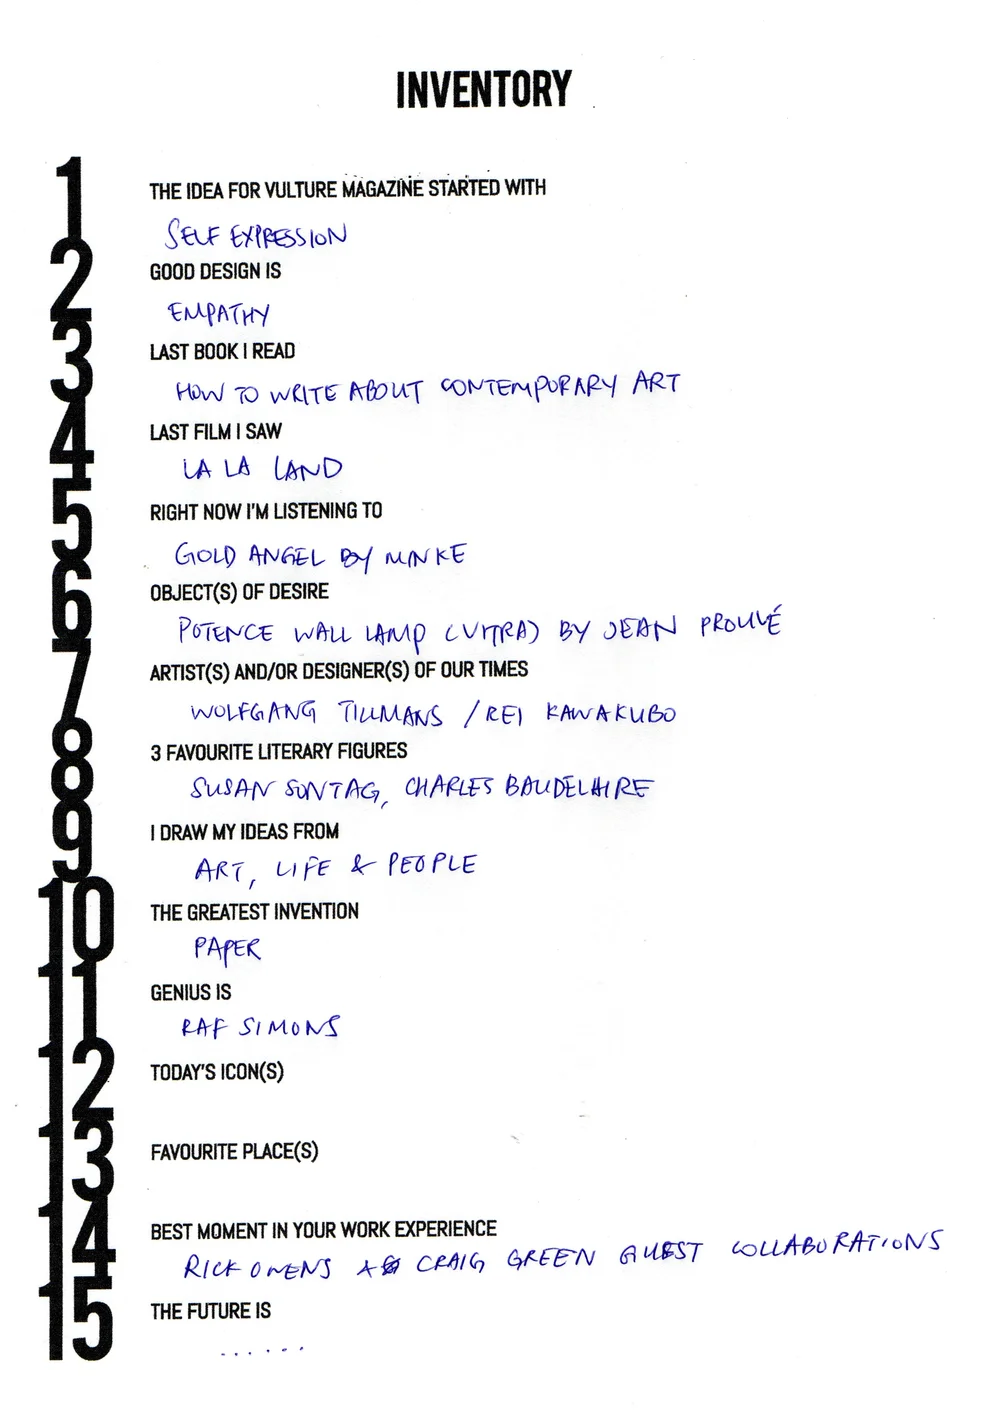 INVENTORY
1
THE IDEA FOR VULTURE MAGAZINE STARTED WITH
SELF EXPRESSION
2
GOOD DESIGN IS
EMPATHY
3
LAST BOOK I READ
HOW TO WRITE ABOUT CONTEMPORARY ART
4
LAST FILM I SAW
LA LA LAND
5
RIGHT NOW I'M LISTENING TO
GOLD ANGEL BY MINKE
6
OBJECT(S) OF DESIRE
POTENCE WALL LAMP (VITRA) BY JEAN PROUVÉ
7
ARTIST(S) AND/OR DESIGNER(S) OF OUR TIMES
WOLFGANG TILLMANS / REI KAWAKUBO
8
3 FAVOURITE LITERARY FIGURES
SUSAN SONTAG, CHARLES BAUDELAIRE
9
I DRAW MY IDEAS FROM
ART, LIFE & PEOPLE
10
THE GREATEST INVENTION
PAPER
11
GENIUS IS
RAF SIMONS
12
TODAY'S ICON(S)
13
FAVOURITE PLACE(S)
14
BEST MOMENT IN YOUR WORK EXPERIENCE
RICK OWENS & CRAIG GREEN GUEST COLLABORATIONS
15
THE FUTURE IS
......